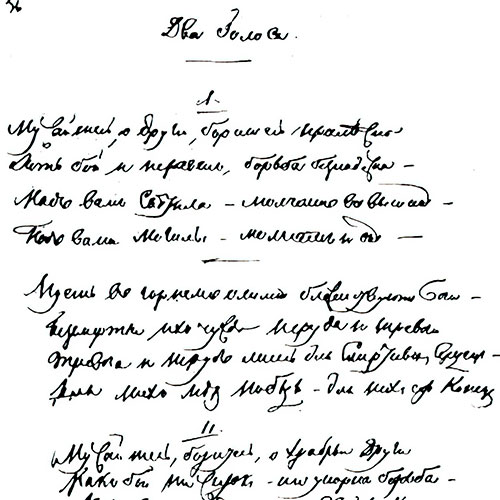 Два Голоса.
I.
Мужайтесь, о други, боритесь прилежно
Хоть бой и неравен, борьба безнадежна –
Надъ вами Свѣтила – молчатъ въ вышинѣ –
Подъ вами Могилы – молчатъ и онѣ —
Пусть въ горнемъ Олимпѣ блаженствуютъ боги –
Безсмертье ихъ чуждо труда и тревоги
Тревога и трудъ лишь для смертныхъ сердецъ –
Для нихъ нѣтъ побѣды – для нихъ есть Конецъ
II.
Мужайтесь, боритесь, о храбрые други
Какъ бой ни жестокъ – ни упорна борьба –